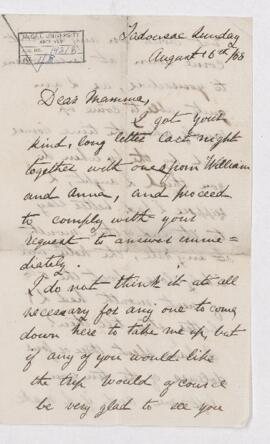 McGILL UNIVERSITY
ACC. NO.
REF.
Tadousac Sunday
August 16th /68
Dear Mamma,
I got your
kind, long letter last night
together with one from William
and Anna, and proceed
to comply with your
request to answer imme=
diately.
I do not think it at all
necessary for any one to come
down here to take me up, but
if any of you would like
the trip would of course
be very glad to see you